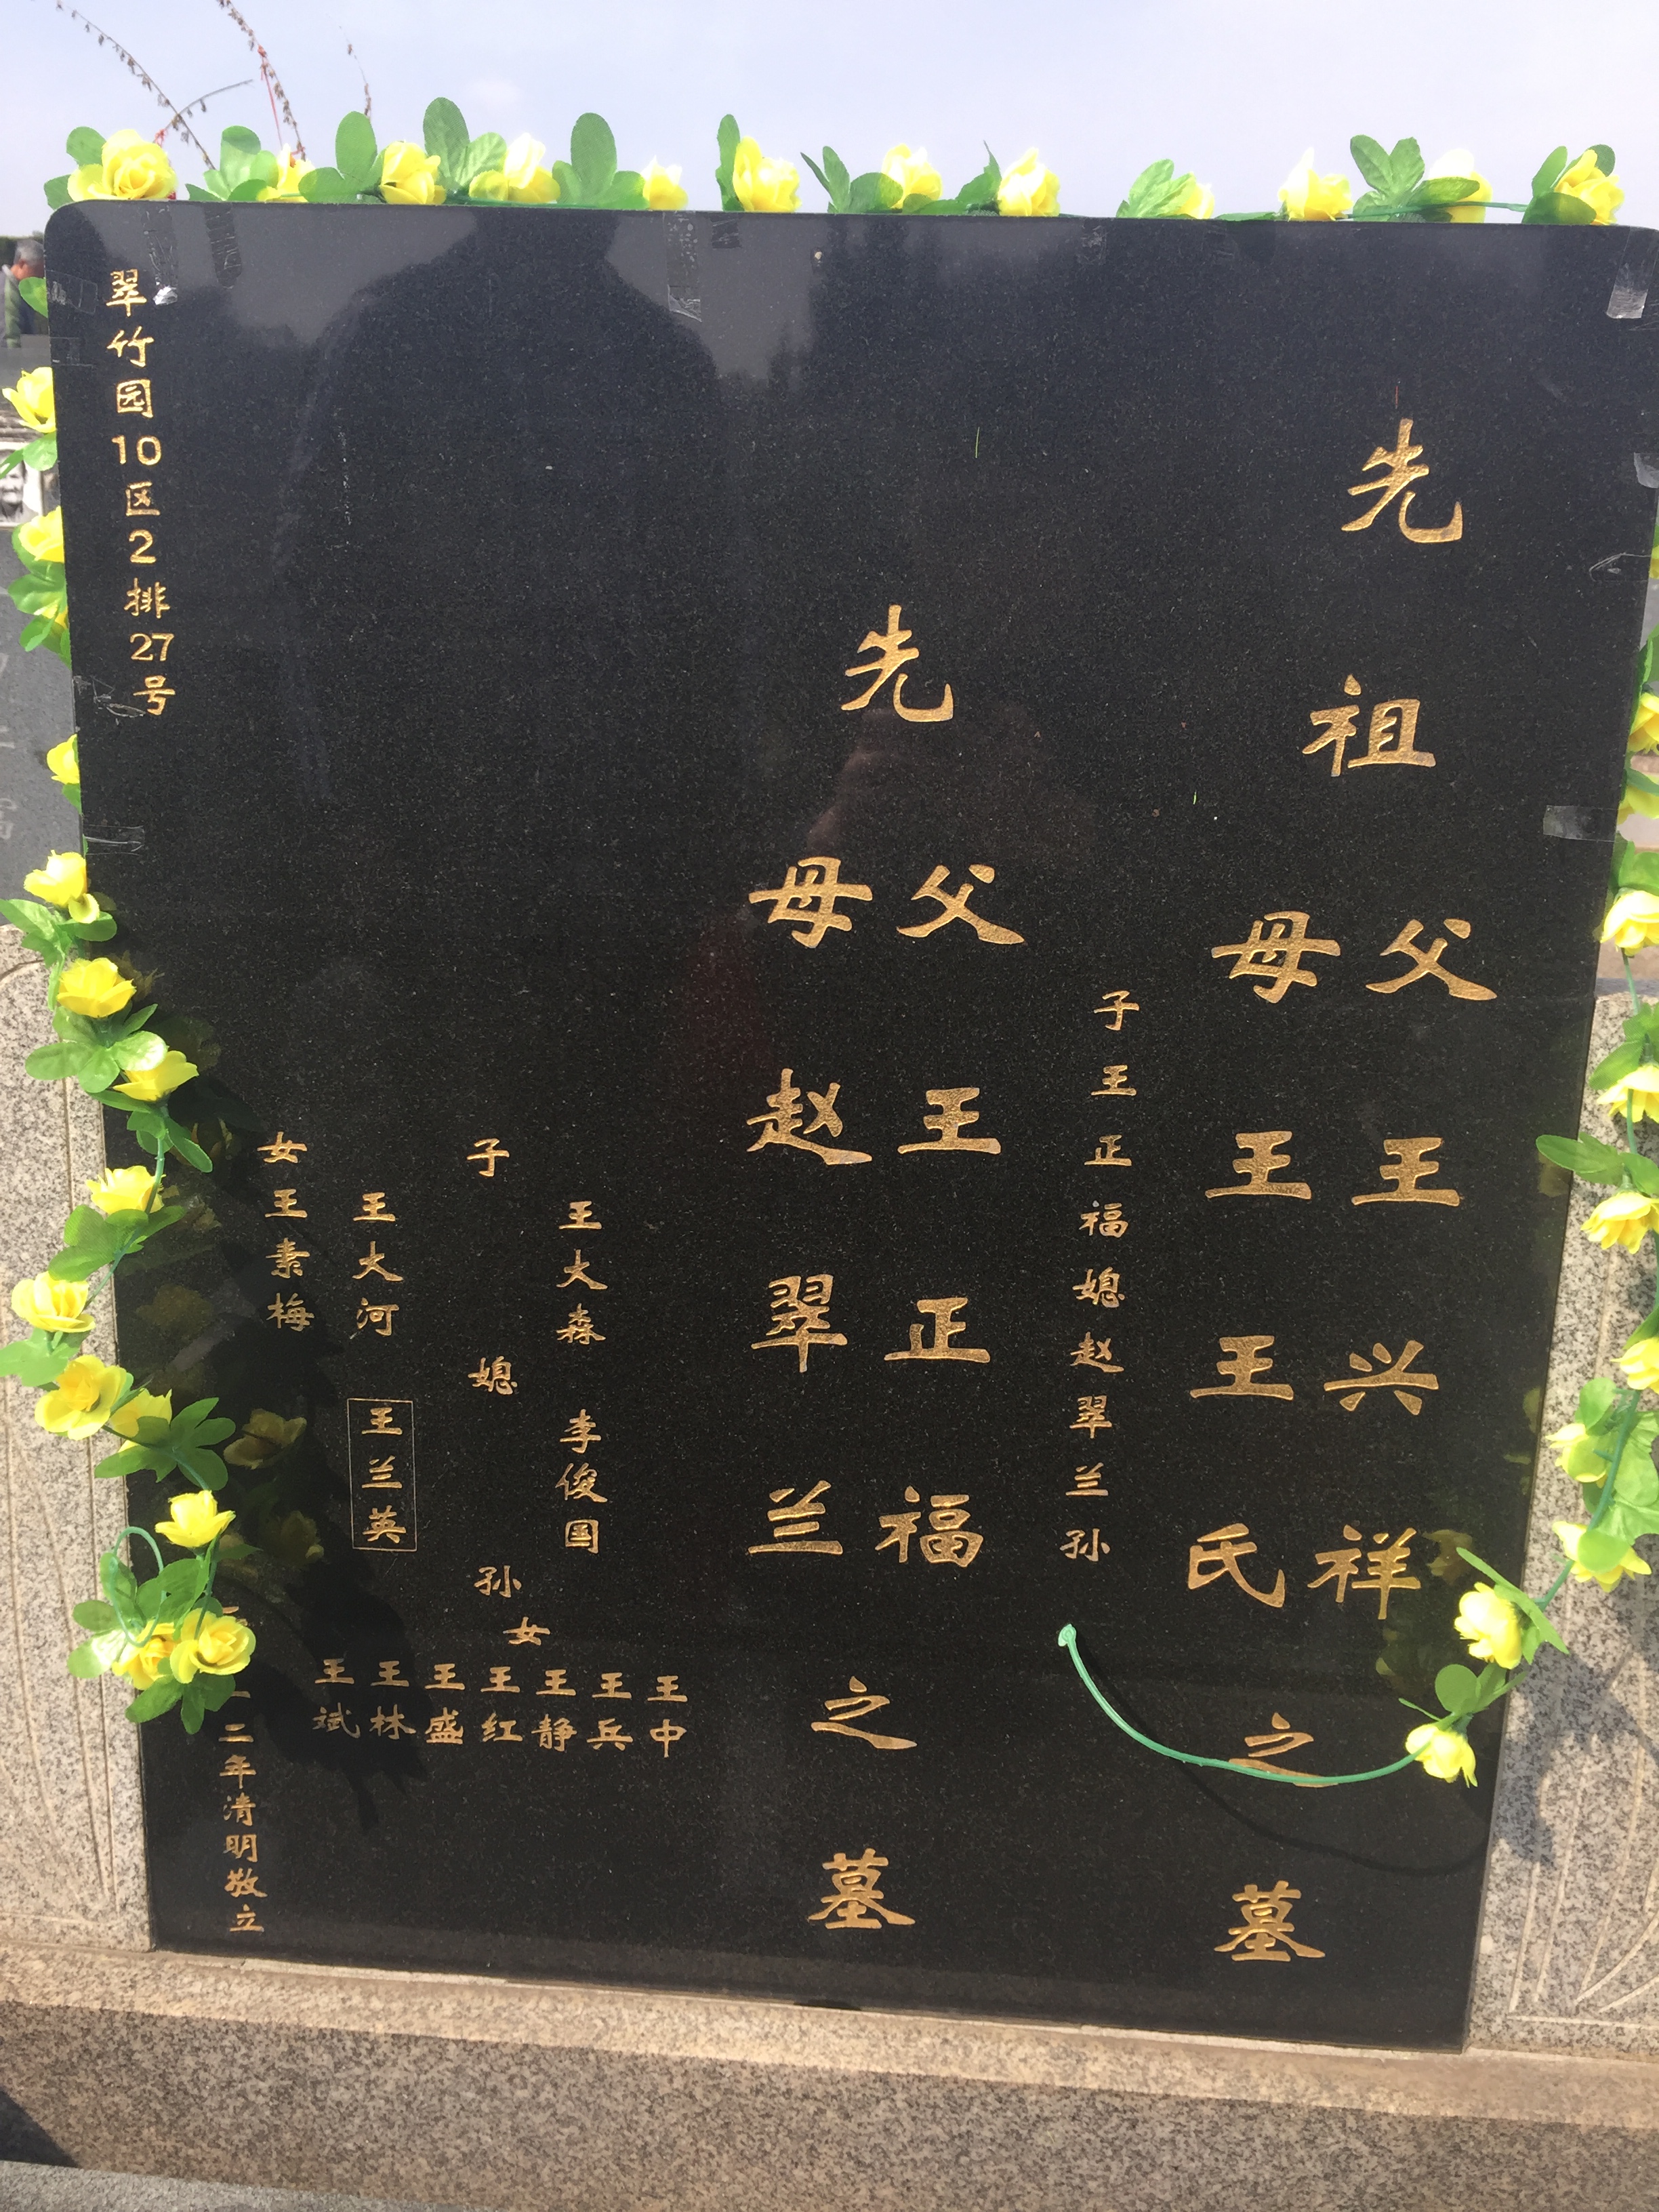 先祖父王兴祥
母王王氏
之墓
子王正福媳赵翠兰孙
先父王正福
母赵翠兰
之墓
子媳孙女
王大森 李俊国
王大河 王兰英
女王素梅
王中
王兵
王静
王红
王盛
王林
王斌
二年清明敬立
翠竹园10区2排27号